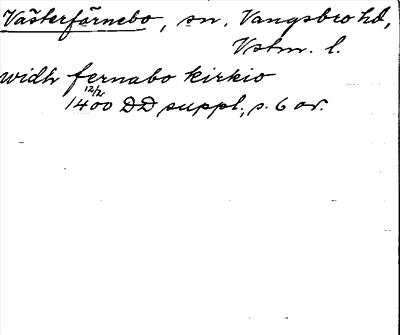 Västerfärnebo, sn. Vangsbro hd,
Vstm. l.
widh fernabo kirkio
12/2
1400 DD suppl., s. 6 or.